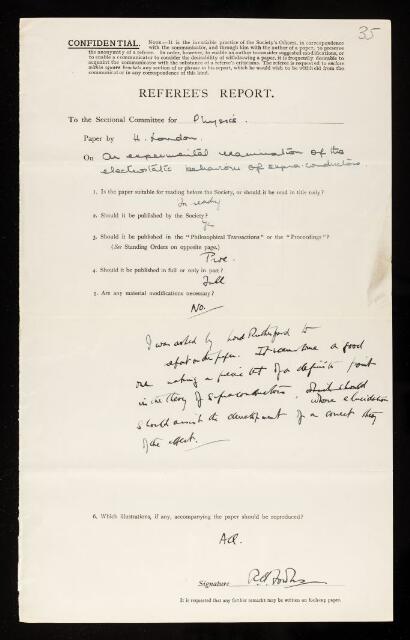 35
CONFIDENTIAL. NOTE.—It is the invariable practice of the Society's Officers, in correspondence
with the communicator, and through him with the author of a paper, to preserve
the anonymity of a referee. In order, however, to enable an author to consider suggested modifications, or
to enable a communicator to consider the desirability of withdrawing a paper, it is frequently desirable to
acquaint the communicator with the substance of a referee's criticisms. The referee is requested to enclose
within square brackets any section of or phrase in his report, which he would wish to be withheld from the
communicator or in any correspondence of this kind.
REFEREE'S REPORT.
To the Sectional Committee for Physics
Paper by H. London.
On An experimental examination of the
electrostatic behaviour of supra-conductors
1. Is the paper suitable for reading before the Society, or should it be read in title only?
2. Should it be published by the Society?
Yes
3. Should it be published in the "Philosophical Transactions" or the "Proceedings"?
(See Standing Orders on opposite page.)
Proc.
4. Should it be published in full or only in part?
Full
5. Are any material modifications necessary?
No.
I was asked by Lord Rutherford to
report on this paper. It seems to me a good
one making a precise test of a definite point
in the theory of supraconductors, whose elucidation
should assist the development of a correct theory
of the effect.
6. Which illustrations, if any, accompanying the paper should be reproduced?
All.
Signature R.H. Fowler
It is requested that any further remarks may be written on foolscap paper.